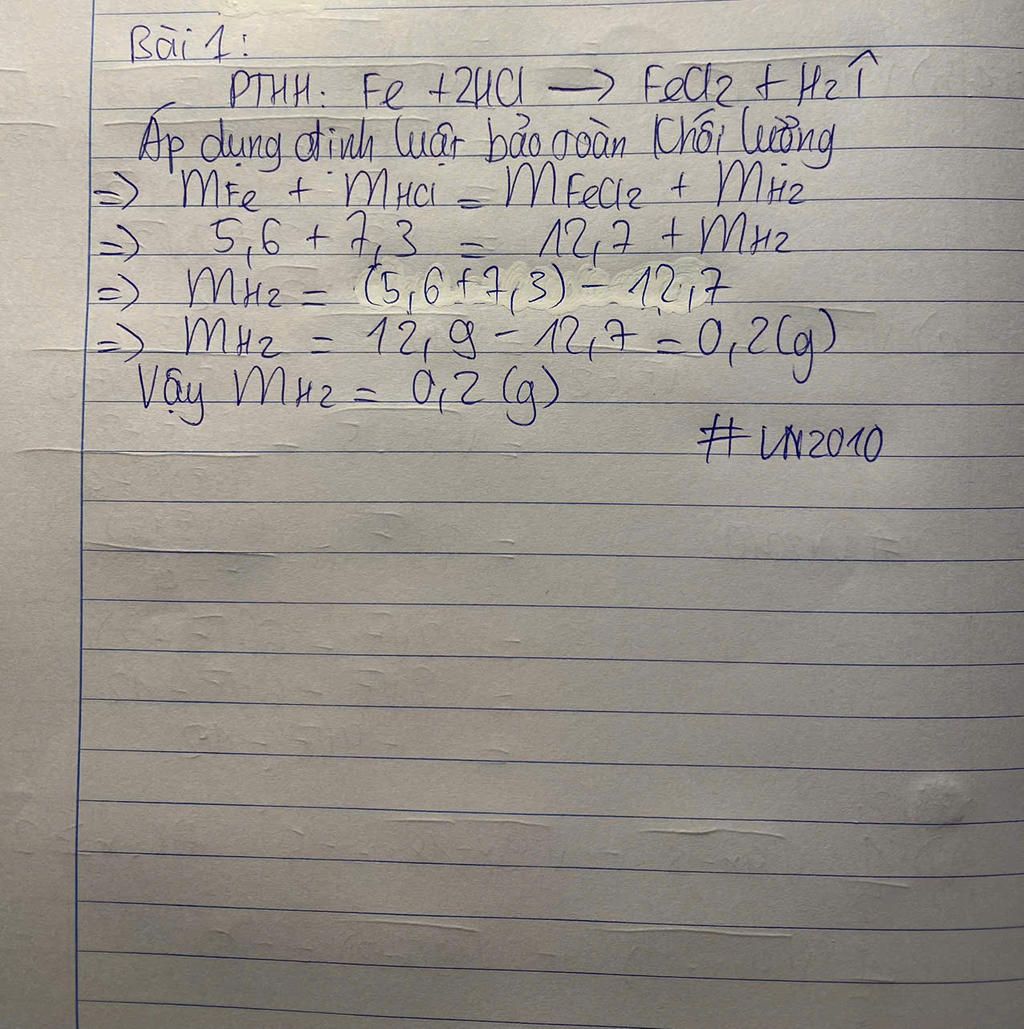 Bài 1:
PTHH: Fe + 2HCl → FeCl2 + H2↑
Áp dụng định luật bảo toàn khối lượng
=> mFe + mHCl = mFeCl2 + mH2
=> 5,6 + 7,3 = 12,7 + mH2
=> mH2 = (5,6 + 7,3) - 12,7
=> mH2 = 12,9 - 12,7 = 0,2 (g)
Vậy mH2 = 0,2 (g)
# VN2010